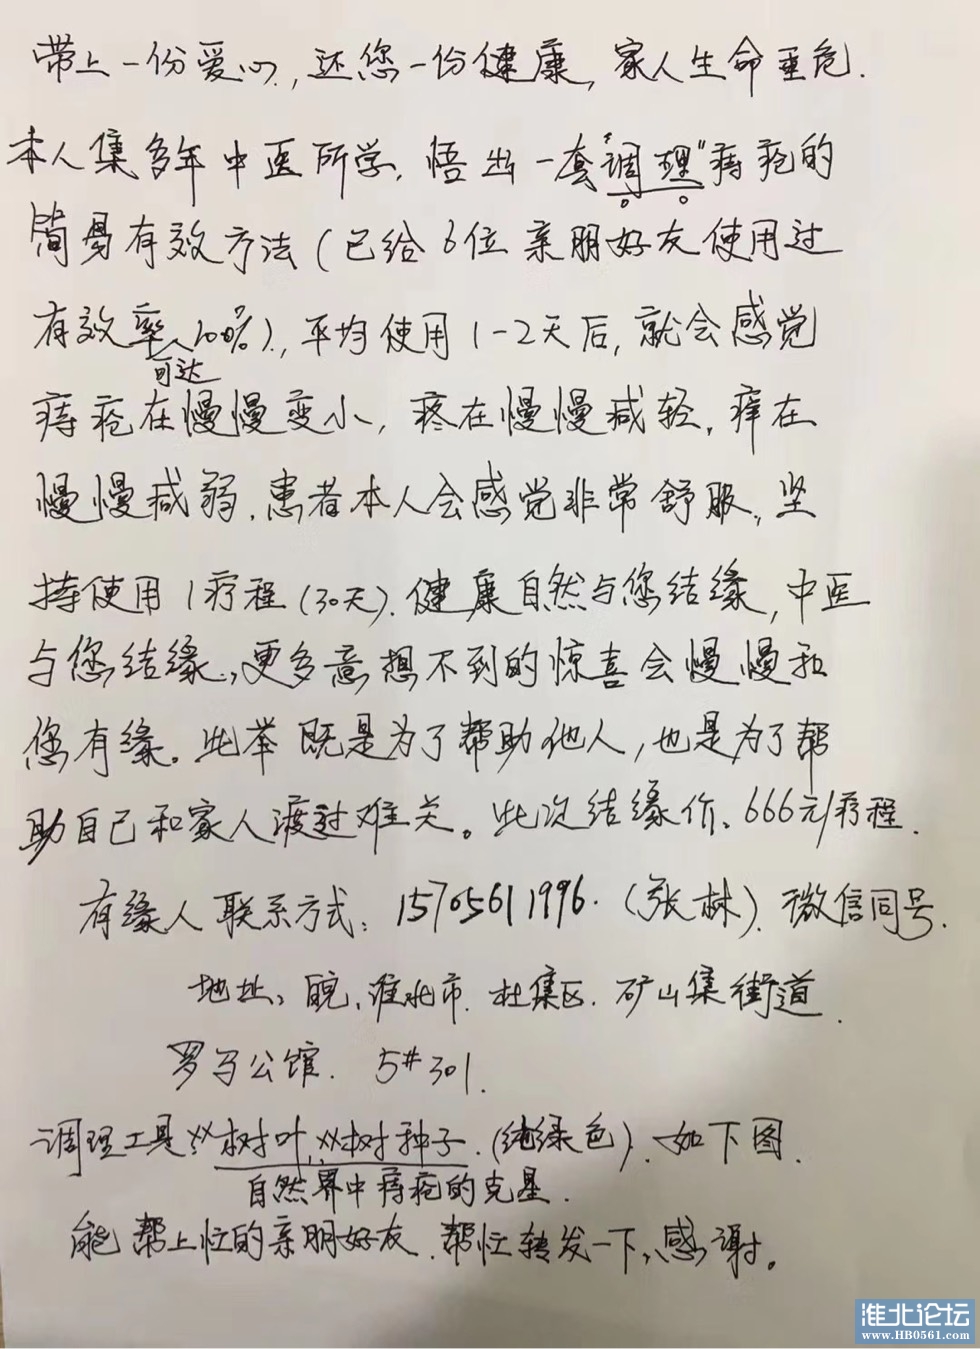 带上一份爱心，还您一份健康，家人生命垂危.
本人集多年中医所学，悟出一套“调理”痔疮的
简易有效方法（已给6位亲朋好友使用过
有效率100%），平均使用1-2天后，就会感觉
可达
痔疮在慢慢变小，疼在慢慢减轻，痒在
慢慢减弱.患者本人会感觉非常舒服，坚
持使用1疗程（30天）.健康自然与您结缘，中医
与您结缘，更多意想不到的惊喜会慢慢和
您有缘。此举既是为了帮助他人，也是为了帮
助自己和家人渡过难关。此次结缘价、666元/疗程.
有缘人联系方式：15705611996.（张林）.微信同号.
地址、皖.淮北市.杜集区.矿山集街道.
罗马公馆. 5#301.
调理工具、××树叶，××树种子.（纯绿色）.如下图.
自然界中痔疮的克星.
能帮上忙的亲朋好友.帮忙转发一下，感谢。
淮北论坛
www.HB0561.com